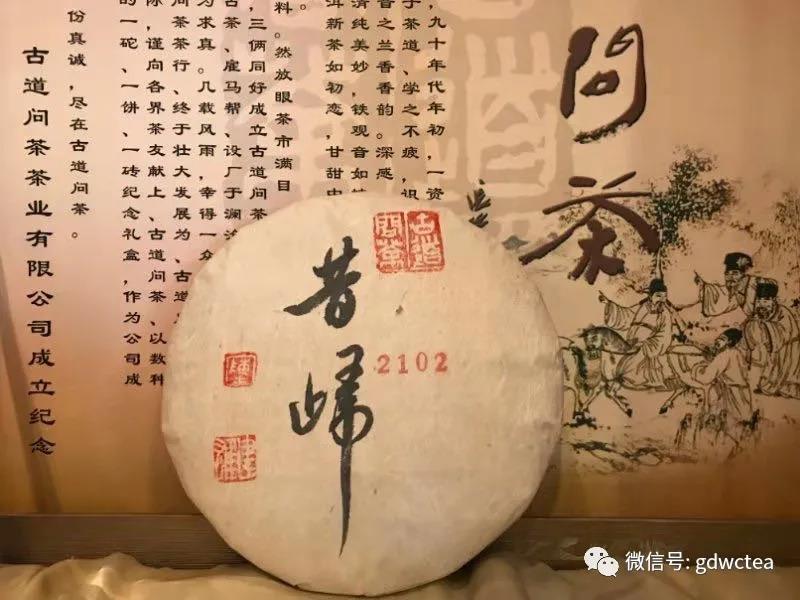 问茶
，九十年代年初，一资
子茶道、学之不疲，识
音之兰香香韵。深感
清纯美妙，铁观音如
洱新茶如初恋，甘甜中
料。然放眼茶市满目
，三俩同好成立古道问茶
古茶、雇马帮、设厂于澜沧
为求真。几载风雨，幸得一众
问茶茶行、终于壮大发展为、古道
际，谨向各界茶友献上、古道问茶、以数种
的一砣、一饼、一砖纪念礼盒，作为公司成
份真诚，尽在古道问茶。
古道问茶茶业有限公司成立纪念
古道问茶
昔歸
2102
微信号: gdwctea